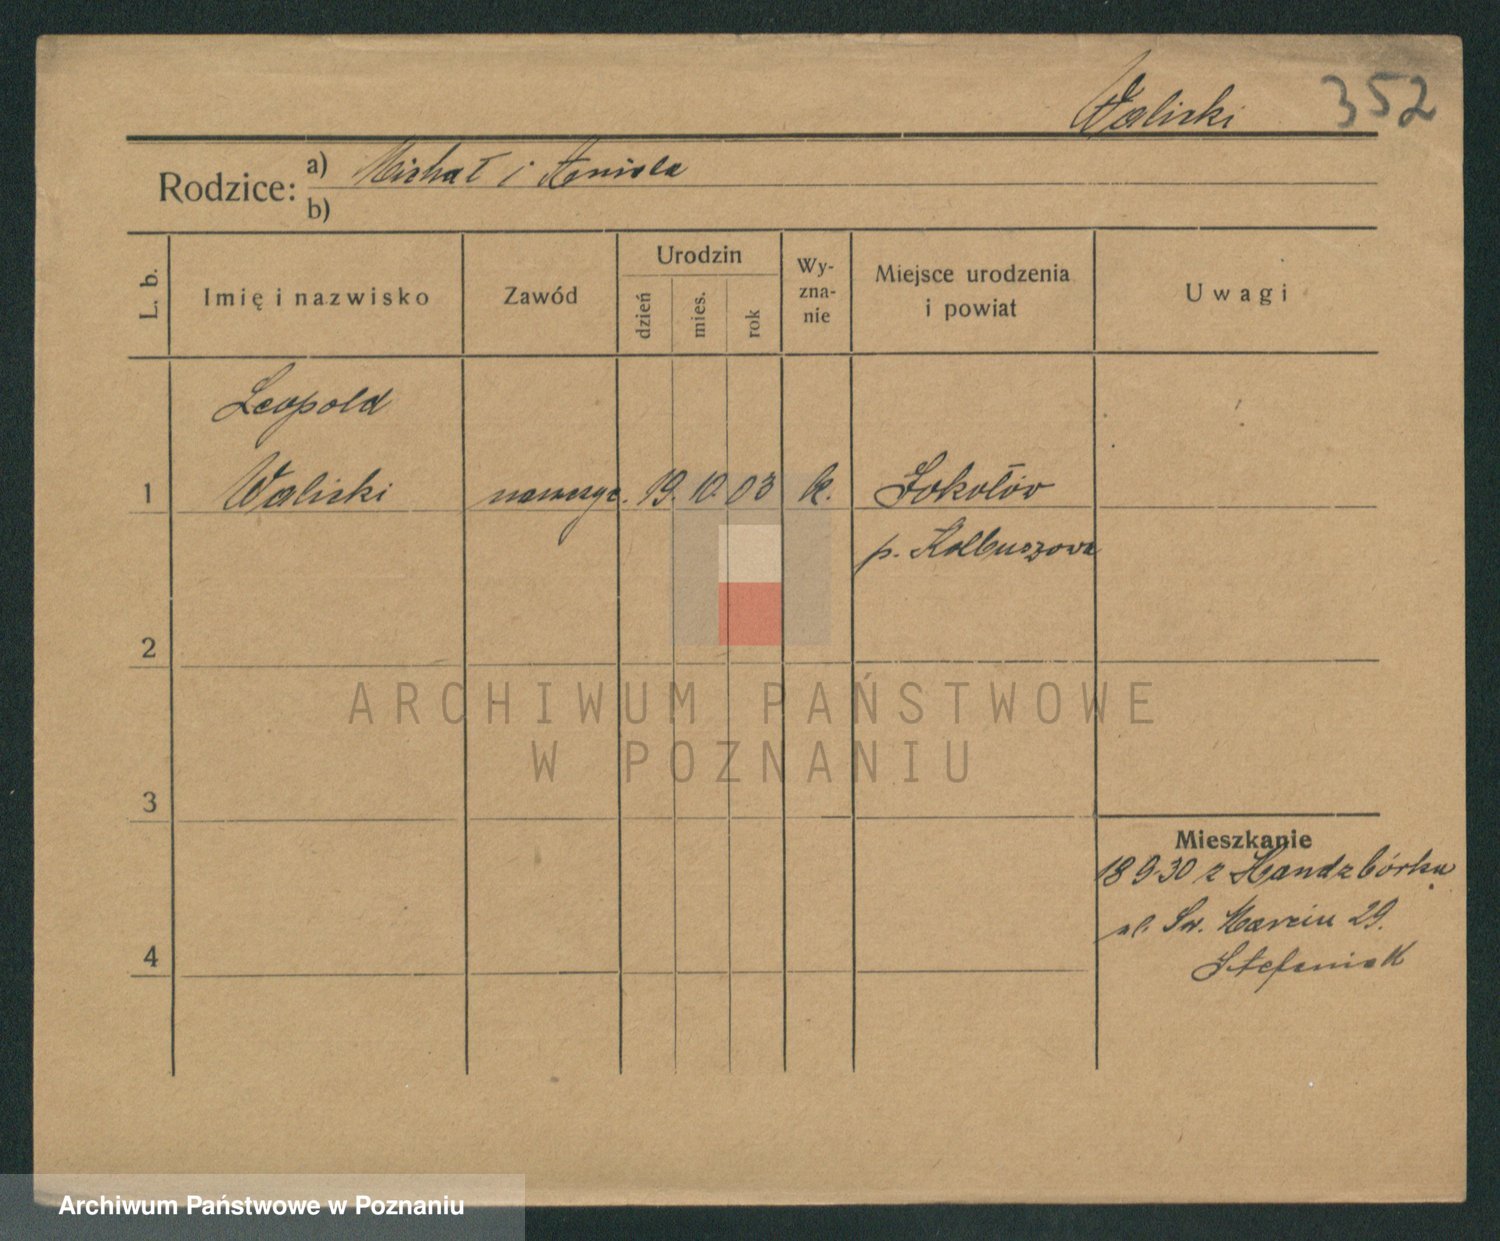 352
Walicki
Rodzice: a) Michał i Aniela
b)
L. b.
Imię i nazwisko
Zawód
Urodzin
dzień
mies.
rok
Wy-
zna-
nie
Miejsce urodzenia
i powiat
Uwagi
Leopold
1 Walicki nauczyc. 19. 10. 03 k. Sokołów
p. Kolbuszowa
2
3
4
Mieszkanie
18 9·30 z
ul. Św. Marcin 29.
Stefaniak
ARCHIWUM PAŃSTWOWE
W POZNANIU
Archiwum Państwowe w Poznaniu